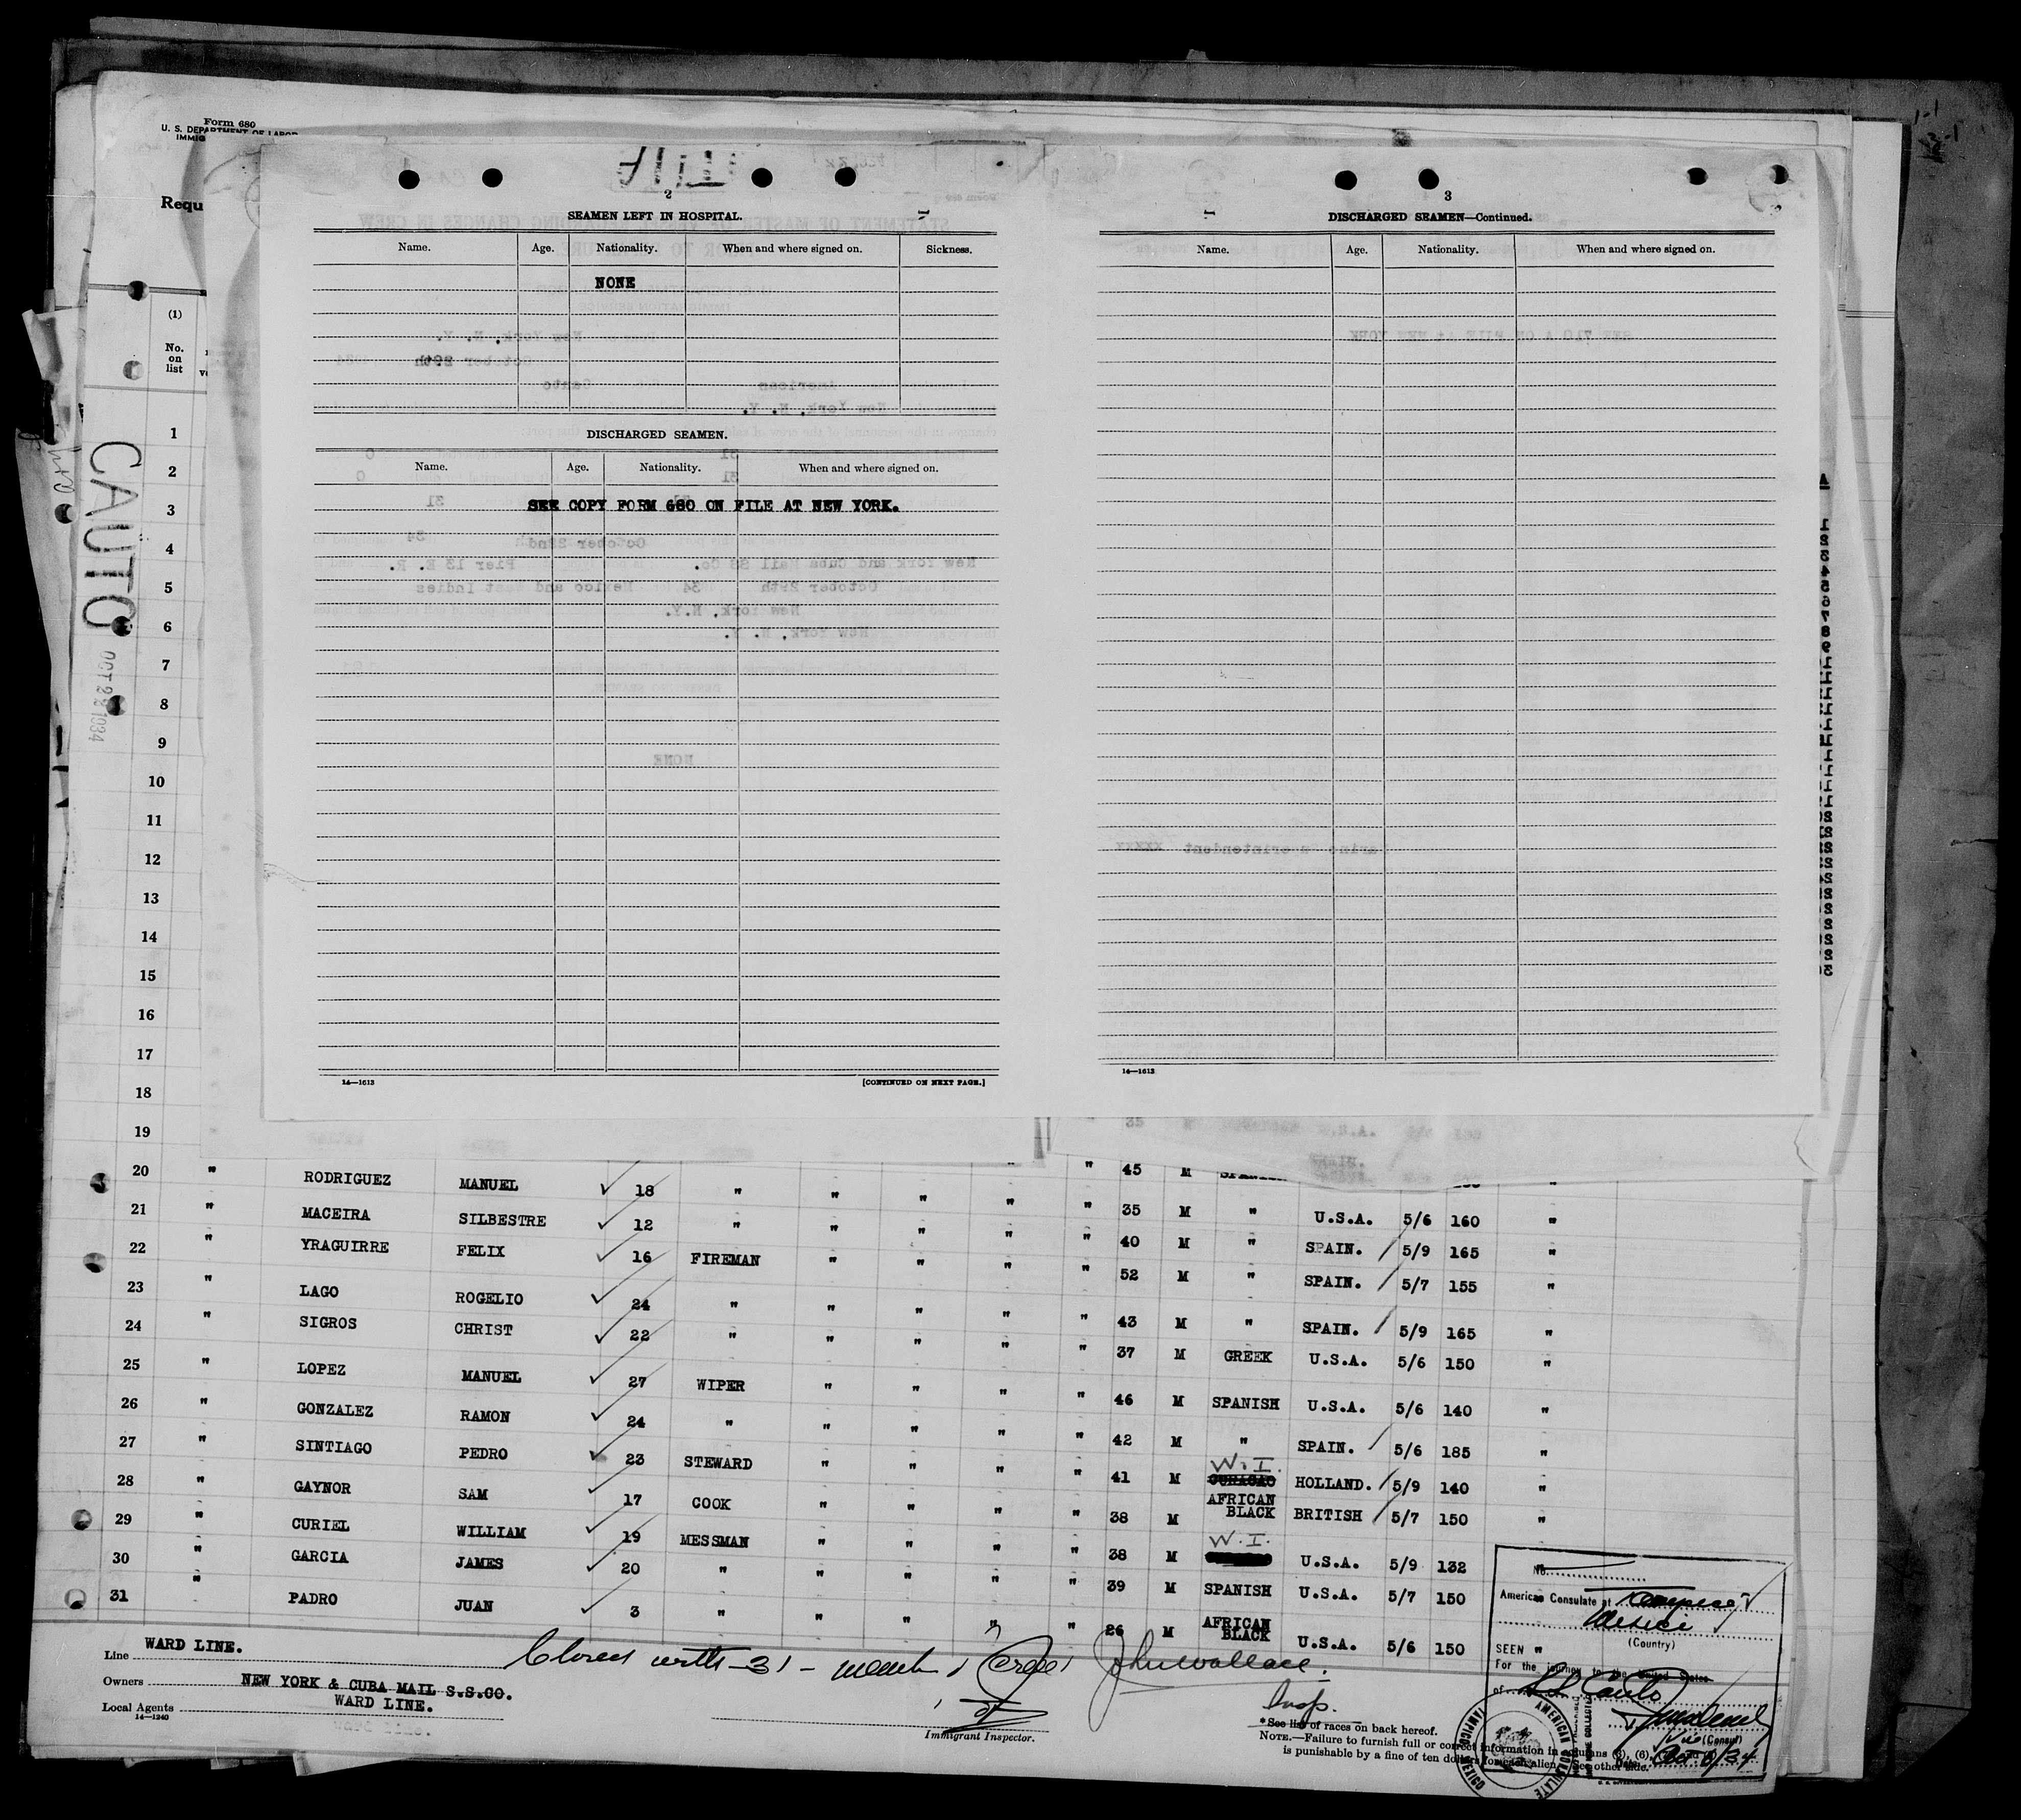 Form 680
U. S. DEPARTMENT OF LABOR
IMMIG
Requ
(1)
No.
on
list
CAUTO
OCT 22 1934
1
2
3
4
5
6
7
8
9
10
11
12
13
14
15
16
17
18
19
2
SEAMEN LEFT IN HOSPITAL.
Name. Age. Nationality. When and where signed on. Sickness.
NONE
DISCHARGED SEAMEN.
Name. Age. Nationality. When and where signed on.
SEE COPY FORM 680 ON FILE AT NEW YORK.
14—1613 [CONTINUED ON NEXT PAGE.]
3
DISCHARGED SEAMEN—Continued.
Name. Age. Nationality. When and where signed on.
14—1613
20 " RODRIGUEZ MANUEL 18 " " " " " 45 M
21 " MACEIRA SILBESTRE 12 " " " " " 35 M " U.S.A. 5/6 160 "
22 " YRAGUIRRE FELIX 16 FIREMAN " " " " 40 M " SPAIN. 5/9 165 "
23 " LAGO ROGELIO 24 " " " " " 52 M " SPAIN. 5/7 155 "
24 " SIGROS CHRIST 22 " " " " " 43 M " SPAIN. 5/9 165 "
25 " LOPEZ MANUEL 27 WIPER " " " " 37 M GREEK U.S.A. 5/6 150 "
26 " GONZALEZ RAMON 24 " " " " " 46 M SPANISH U.S.A. 5/6 140 "
27 " SINTIAGO PEDRO 23 STEWARD " " " " 42 M " SPAIN. 5/6 185 "
28 " GAYNOR SAM 17 COOK " " " " 41 M W.I. CURACAO HOLLAND. 5/9 140 "
29 " CURIEL WILLIAM 19 MESSMAN " " " " 38 M AFRICAN BLACK BRITISH 5/7 150 "
30 " GARCIA JAMES 20 " " " " " 38 M W.I. U.S.A. 5/9 132
31 " PADRO JUAN 3 " " " " " 39 M SPANISH U.S.A. 5/7 150
26 M AFRICAN BLACK U.S.A. 5/6 150
Line WARD LINE.
Owners NEW YORK & CUBA MAIL S.S.CO.
Local Agents WARD LINE.
14—1240
Closed with 31 - members Crew John Wallace.
Insp.
Immigrant Inspector.
*See list of races on back hereof.
NOTE.—Failure to furnish full or correct information in columns (3), (6),
is punishable by a fine of ten dollars for each alien. See other side.
No.
American Consulate at
Mexico
(Country)
SEEN
For the journey to the United States
of S.S. Cauto
(Consul)
Date
AMERICAN CONSULATE
MEXICO